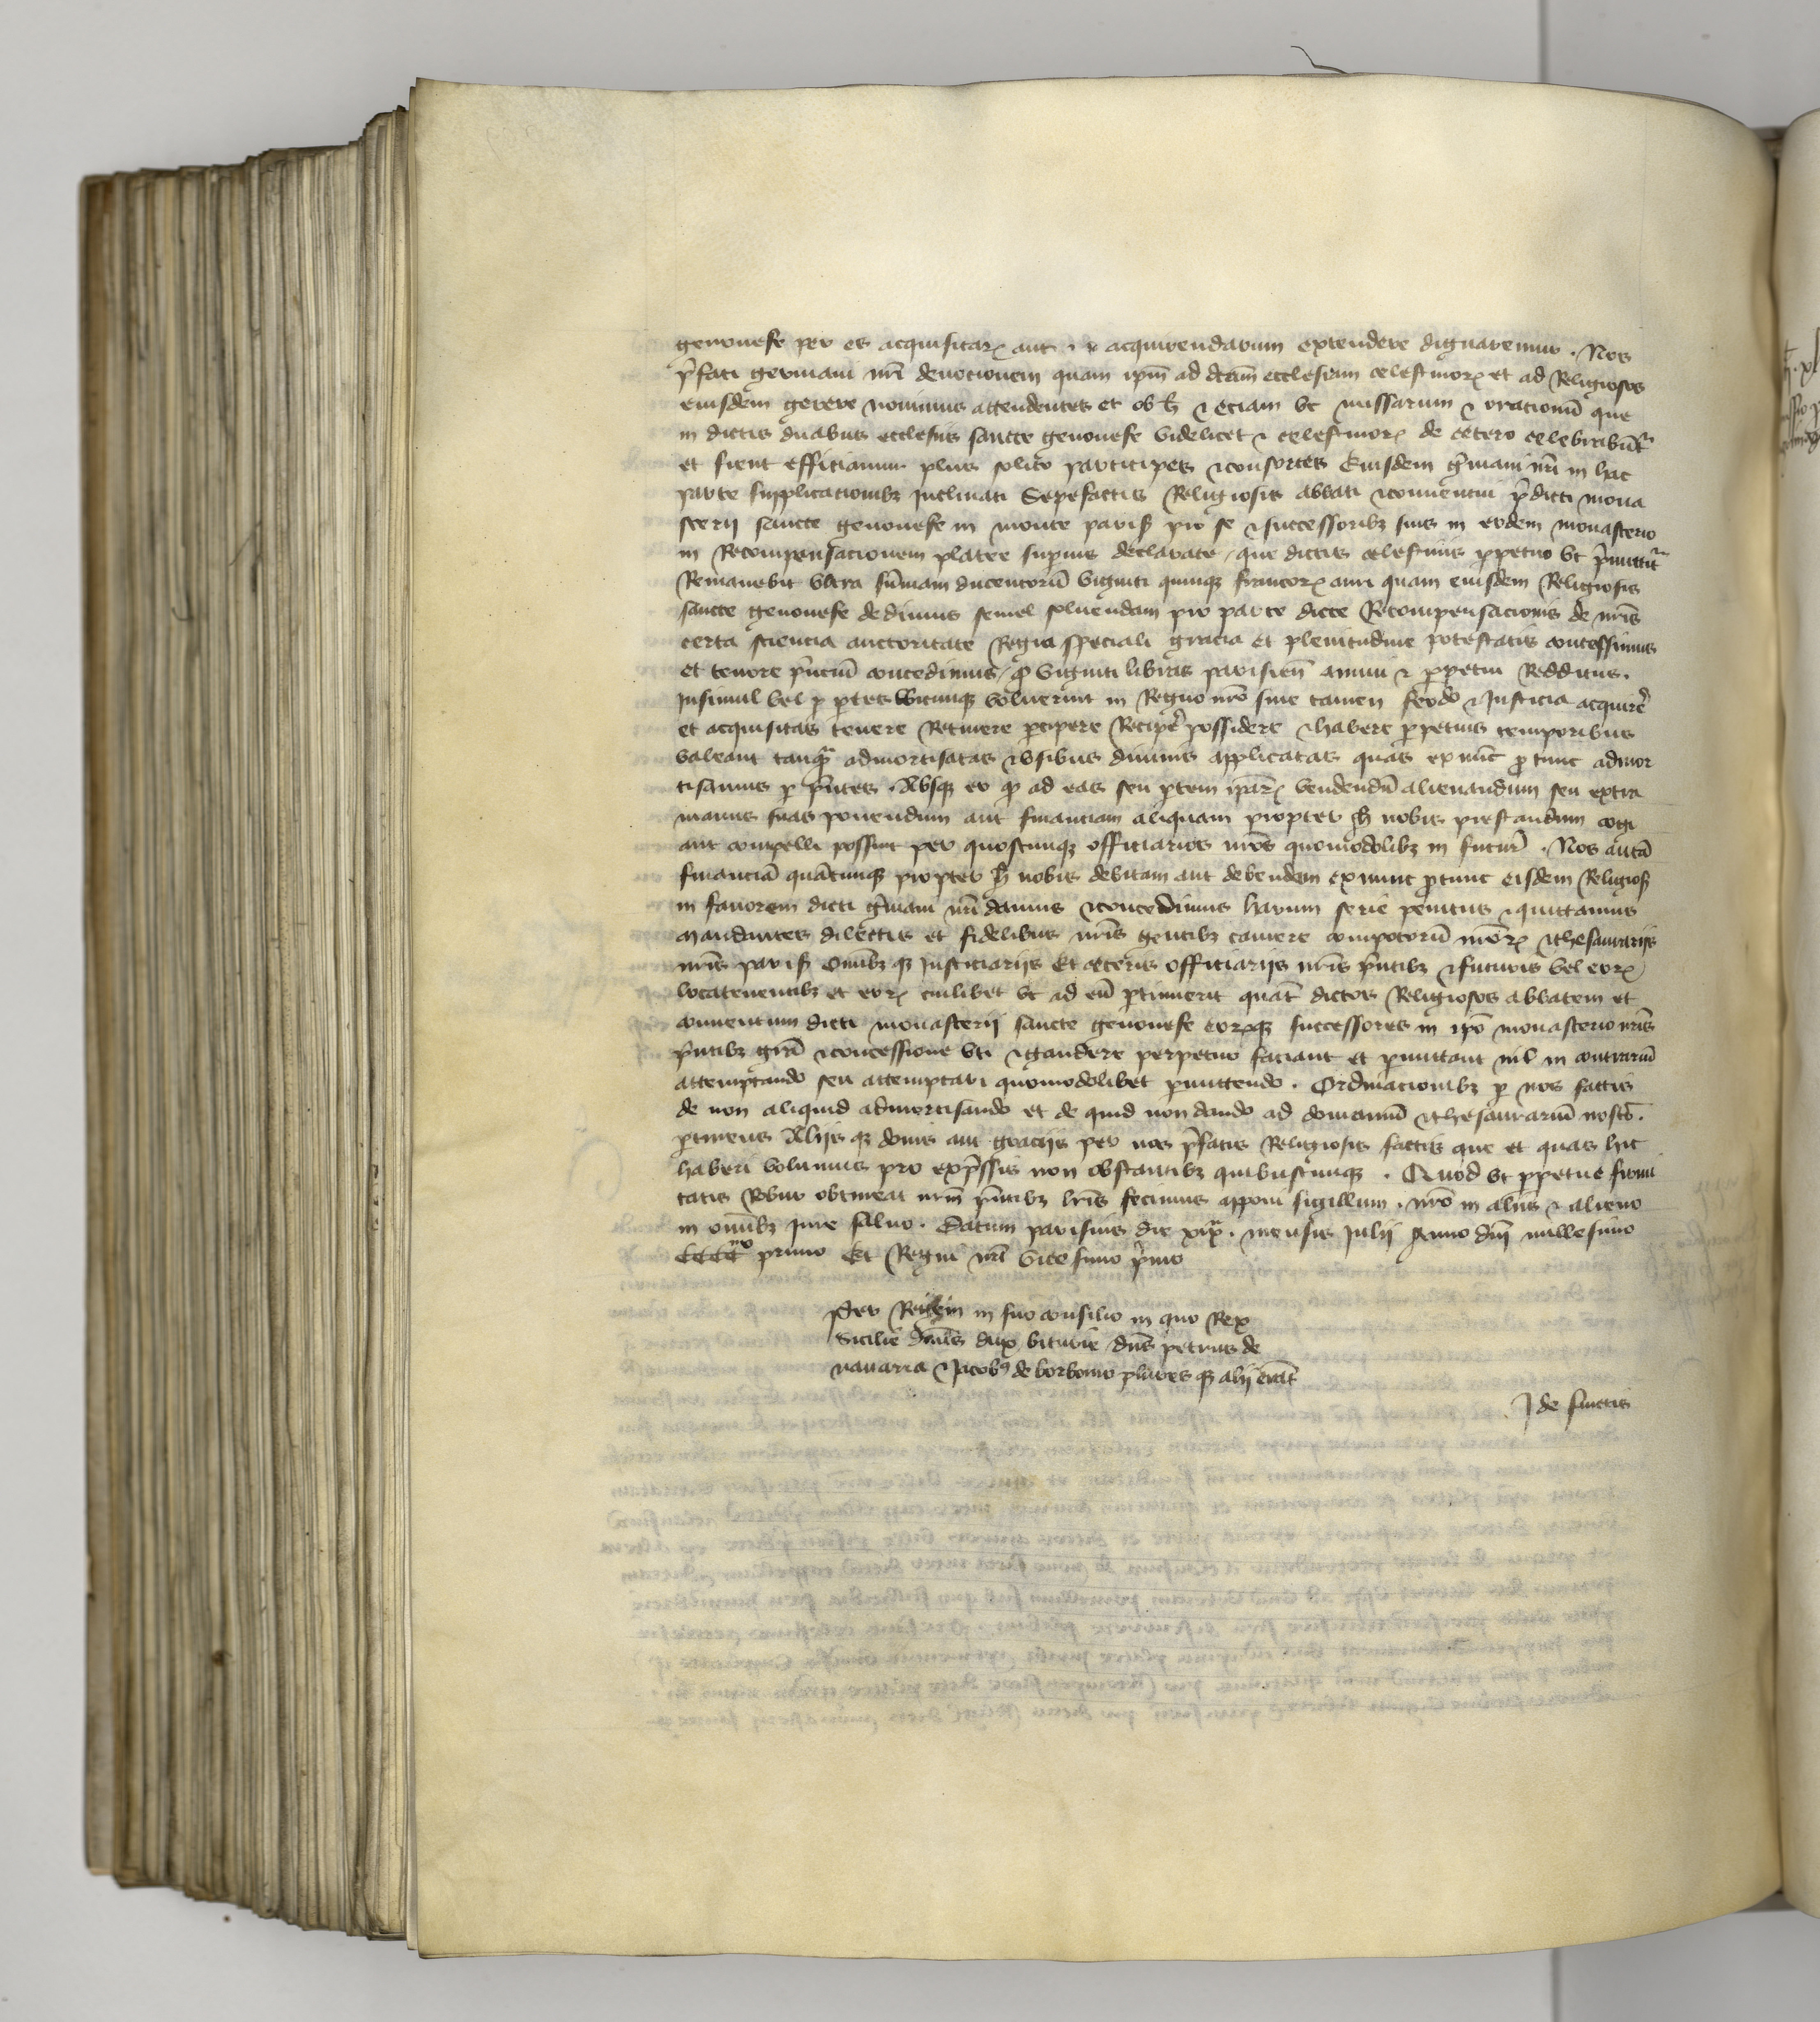 genovefe per es acquisitarꝝ aut ⁊ acquirendarum extendere dignaremur . Nos
p̄fati germani nr̄i devocionem quam ip̄m ad dc̄am ecclesiam celestinorꝝ et ad Religiosos
eiusdem gerere novimus attendentes et ob h̄ ⁊ eciam vt missarum ⁊ oracionū que
in dictis duabus ecclesiis sancte genovefe videlicet ⁊ celestinorꝝ de cetero celebrabūt̄
et fient efficiamur plus solito participes ⁊ consortes Eiusdem ḡmani nr̄i in hac
parte supplicacionibꝫ Inclinati Sepefactis Religiosis abbati ⁊ conventui p̄dicti mona
sterij sancte genovefe in monte parisꝭ pro se ⁊ successoribꝫ suis in eodem monasterio
in Recompensacionem platee superius declarate / que dictis celestinis ꝑpetuo vt p̄mittit̄
Remanebit vltra sūmam ducentorū viginti quinqꝫ francorꝝ auri quam eiusdem Religiosis
sancte genovefe dedimus semel solvendam pro parte dicte Recompensacionis de nr̄is
certa sciencia auctoritate Regia speciali gracia et plenitudine potestatis concessimus
et tenore p̄nciū concedimus / ꝙ viginti libras parisien̄ annui ⁊ ꝑpetui Redditus .
Insimul vel ꝑ ꝑtes vbicunqꝫ voluerint in Regno nr̄o sine tamen feodo ⁊ Justicia acquirē
et acquisitas tenere Retinere ꝑcipere Recipē possidere ⁊ habere ꝑpetuis temporibus
valeant tanqᷓ admortisatas ⁊ vsibus divinis applicatas quas ex nūc ꝓ tunc admor
tisamus ꝑ p̄ntes . Absqꝫ eo ꝙ ad eas seu ꝑtem ip̄arꝝ vendendū alienandum seu extra
manus suas ponendum aut financiam aliquam propter h̄ nobis prestandum cogi
aut compelli possint per quoscunqꝫ officiarios nr̄os quomodolibꝫ in futur̄ . Nos autē
financiā quācunqꝫ propter h̄ nobis debitam aut debendam ex nunc ꝓ tunc eisdem Religiosꝭ
in favorem dicti ḡmani nr̄i damus ⁊ concedimus harum serie penitus ⁊ quittamus
mandantes dilectis et fidelibus nr̄is gentibꝫ camere compotorū nr̄orꝝ ⁊ thesaurarijs
nr̄is parisꝭ Om̄ibꝫ qꝫ Justiciarijs Et ceteris officiarijs nr̄is p̄ntibꝫ ⁊ futuris vel eorꝝ
locatenentibꝫ et eorꝝ cuilibet vt ad eū ꝑtinuerit quat̄ dictos Religiosos abbatem et
conventum dicti monasterij sancte genovefe eorꝝqꝫ successores in ip̄o monasterio nr̄is
p̄ntibꝫ gr̄a ⁊ concessione vti ⁊ gaudere perpetuo faciant et ꝑmittant nil in contrariū
attemptando seu attemptari quomodolibet ꝑmittendo . Ordinacionibꝫ ꝑ nos factis
de non aliquid admortisando et de quid non dando ad domaniū ⁊ thesaurariū nostr̄ .
ꝑtinens Alijs qꝫ donis aut gracijs per nos p̄fatis Religiosis factis que et quas hic
haberi volumus pro exp̄ssis non obstantibꝫ quibuscunqꝫ . Quod vt ꝑpetue firmi
tatis Robur obtineat nr̄m p̄ntibꝫ lr̄is fecimus apponi sigillum . nr̄o in aliis ⁊ alieno
in om̄ibꝫ iure salvo . Datum parisius die xixᵃ . mensis Julij Anno dn̄i millesimo
CCCCᵐᵒ primo Et Regni nr̄i vicesimo p̄mo
Per Regem in suo consilio in quo Rex
Sicilie dn̄us dux biturie dn̄s petrus de
navarra ⁊ Jacobꝰ de borbonio plures qꝫ alij erāt
J de sanctis